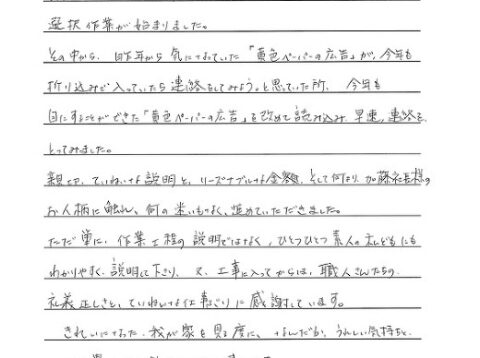 選択作業が始まりました。
その中から、昨年から気になっていた「黄色ペーパーの広告」が、今年も
折り込みで入っていたら連絡をしてみよう。と思っていた所、今年も
目にすることができた「黄色ペーパーの広告」を改めて読み込み、早速、連絡を
とってみました。
親切、ていねいな説明と、リーズナブルな金額、そして何より加藤社長様の
お人柄に触れ、何の迷いもなく、進めていただきました。
ただ単に、作業工程の説明ではなく、ひとつひとつ素人の私どもにも
わかりやすく、説明して下さり、又、工事に入ってからは、職人さんたちの
礼義正しさと、ていねいな仕事ぶりに感謝しています。
きれいになった我が家を見る度に、なんだか、うれしい気持ちと、